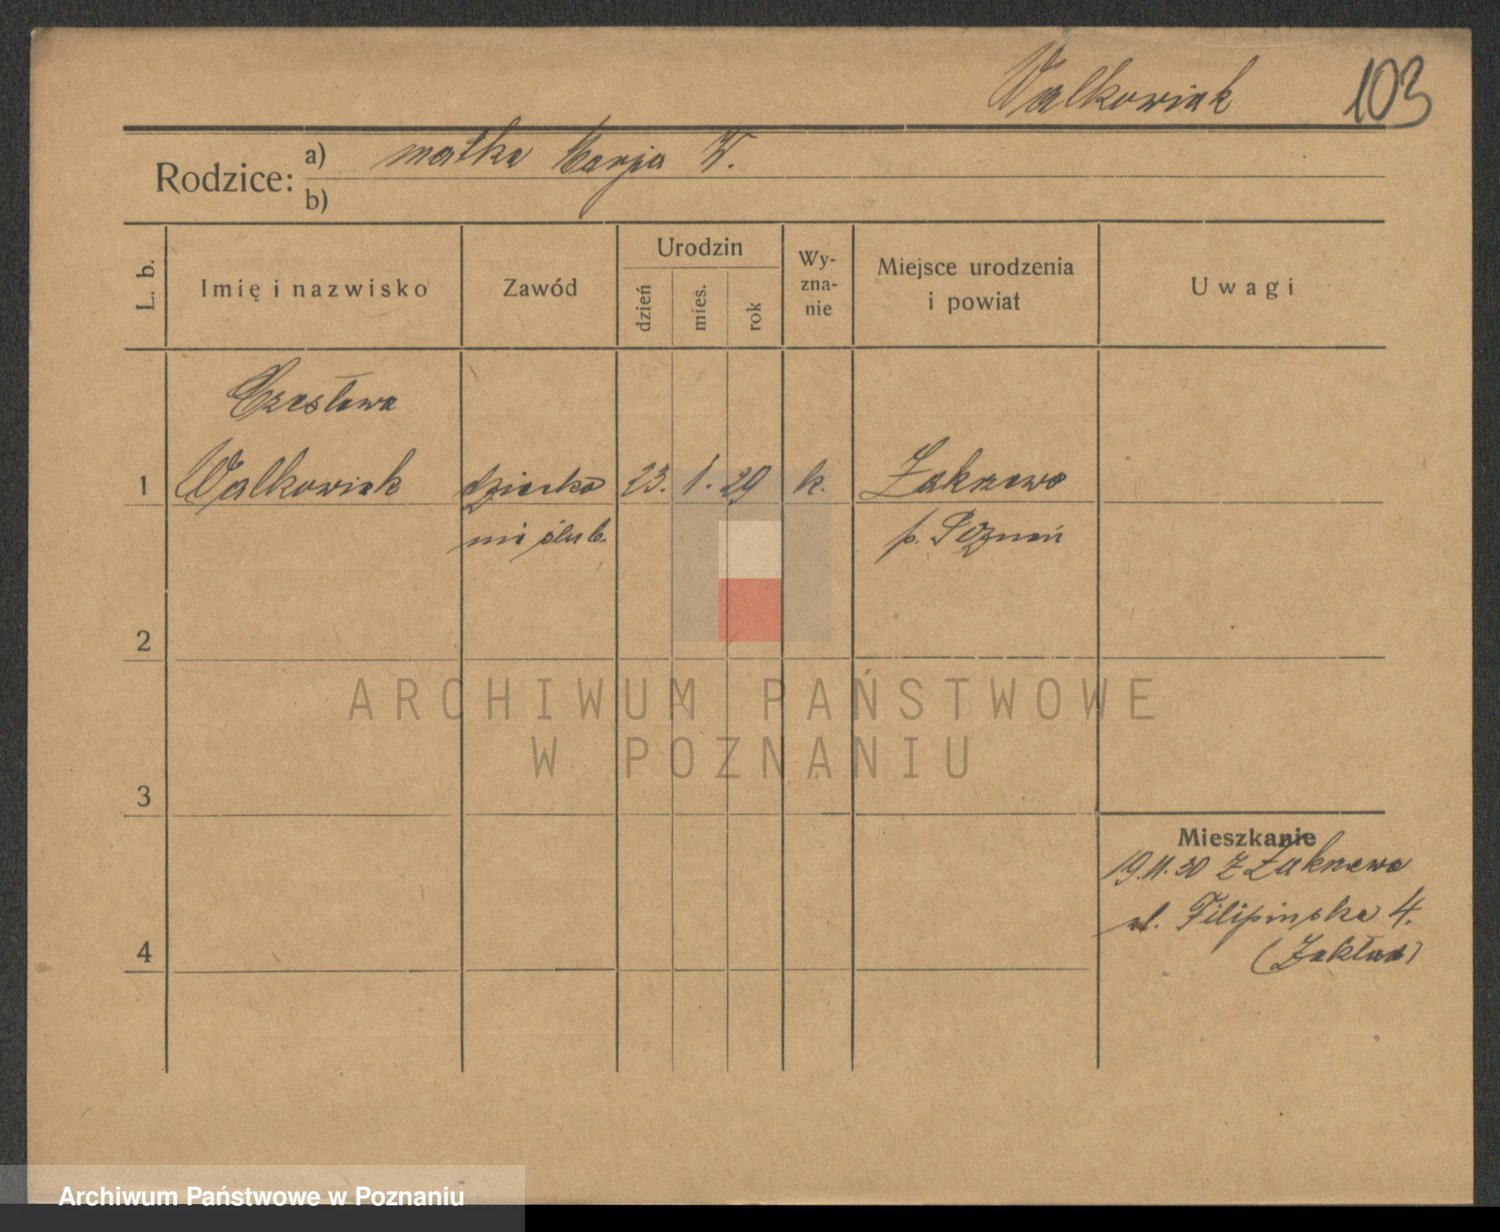 Walkowiak 103
Rodzice: a) matka Marja W.
b)
L. b. Imię i nazwisko Zawód Urodzin dzień mies. rok Wy-zna-nie Miejsce urodzenia i powiat Uwagi
Czesława
1 Walkowiak dziecko 23. 1. 29 k. Żakrzewo
nieślub. p. Poznań
2
ARCHIWUM PAŃSTWOWE
W POZNANIU
3
Mieszkanie
19.11.30 z Zakrzewa
ul. Filipińska 4.
4 (Zakład)
Archiwum Państwowe w Poznaniu